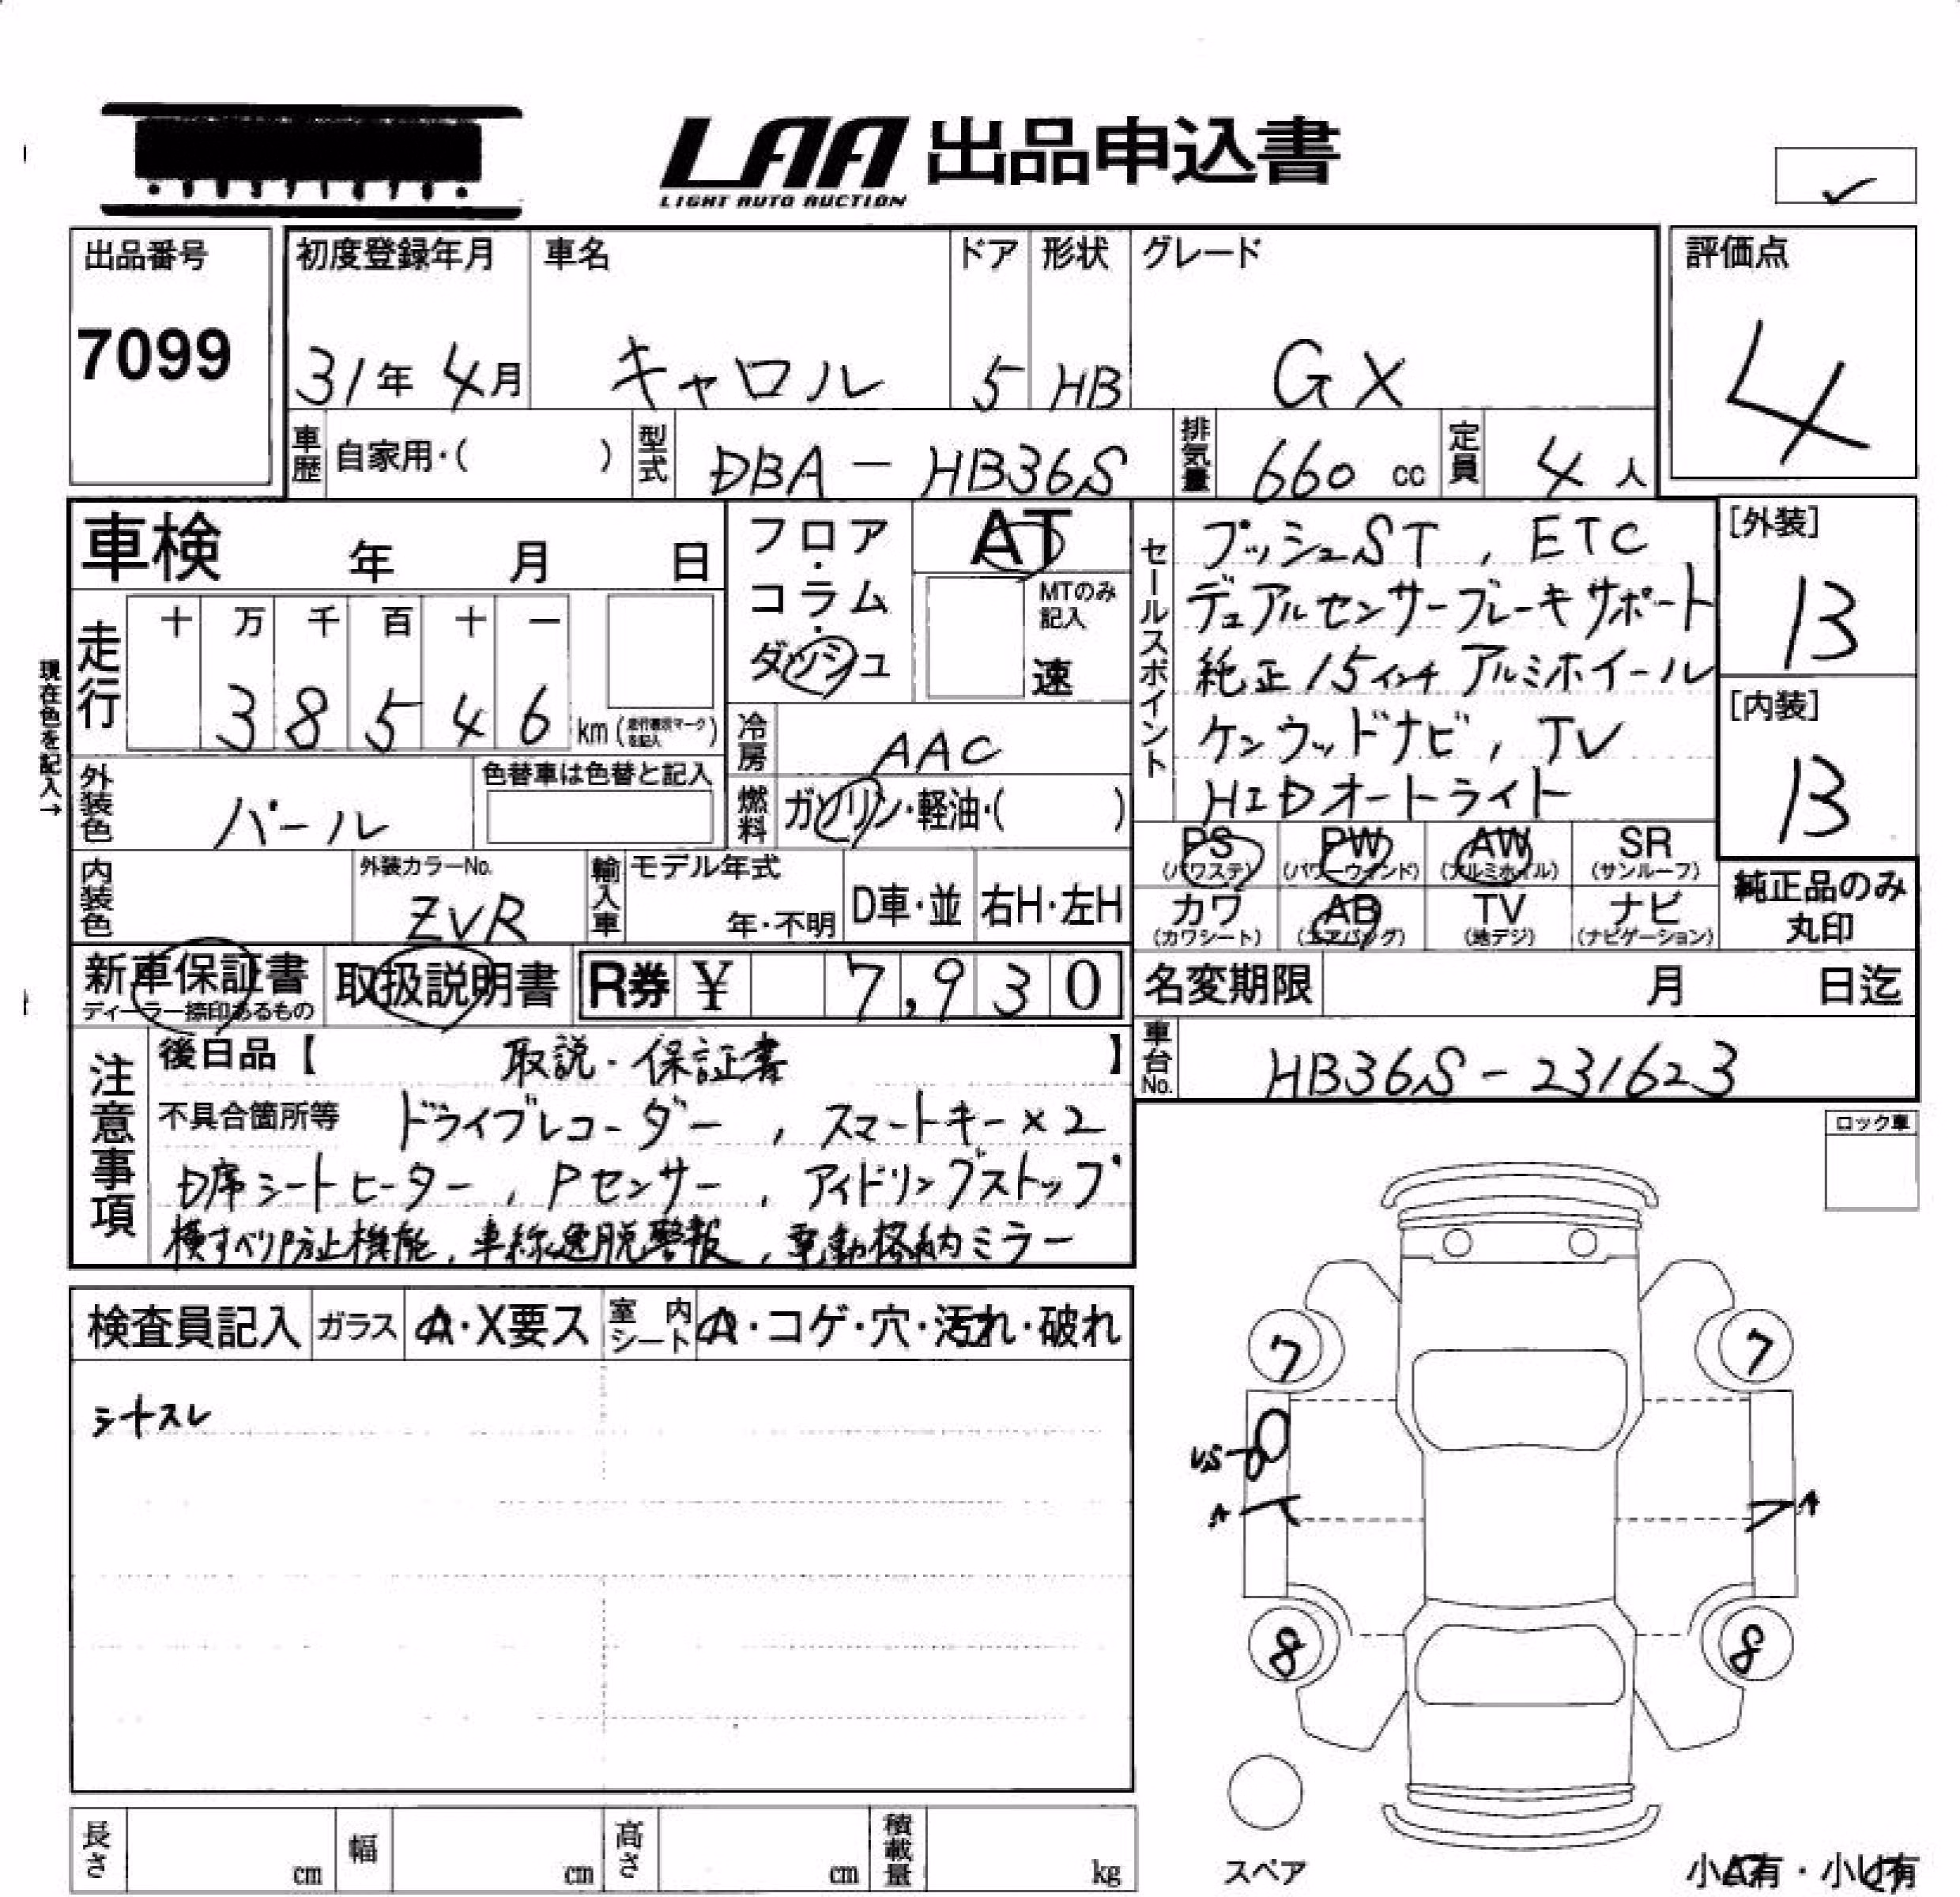 LAA 出品申込書
LIGHT AUTO AUCTION
出品番号
7099
初度登録年月
31年 4月
車名
キャロル
ドア
5
形状
HB
グレード
GX
評価点
4
車歴 自家用・( )
型式 DBA-HB36S
排気量 660 cc
定員 4人
車検 年 月 日
フロア・コラム・ダッシュ
AT
MTのみ記入
速
現在色を記入→
走行
十 万 千 百 十 一
3 8 5 4 6 km (走行書換マークを記入)
冷房 AAC
外装色 パール
色替車は色替と記入
燃料 ガソリン・軽油・( )
内装色
外装カラーNo.
ZVR
輸入車
モデル年式
年・不明
D車・並
右H・左H
セールスポイント
プッシュST, ETC
デュアルセンサーブレーキサポート
純正15インチアルミホイール
ケンウッドナビ, TV
HIDオートライト
[外装]
B
[内装]
B
PS (パワステ)
PW (パワーウインド)
AW (アルミホイル)
SR (サンルーフ)
カワ (カワシート)
AB (エアバッグ)
TV (地デジ)
ナビ (ナビゲーション)
純正品のみ丸印
新車保証書
ディーラー捺印あるもの
取扱説明書
R券 ¥ 7,930
名変期限 月 日迄
車台No. HB36S-231623
注意事項
後日品【 取説・保証書 】
不具合箇所等 ドライブレコーダー, スマートキー×2
D席シートヒーター, Pセンサー, アイドリングストップ
横すべり防止機能, 車線逸脱警報, 電動格納ミラー
ロック車
検査員記入
ガラス A・X要ス
室内シート A・コゲ・穴・汚れ・破れ
シートスレ
7
7
US
A
A
8
8
スペア
長さ cm
幅 cm
高さ cm
積載量 kg
小A有・小U有